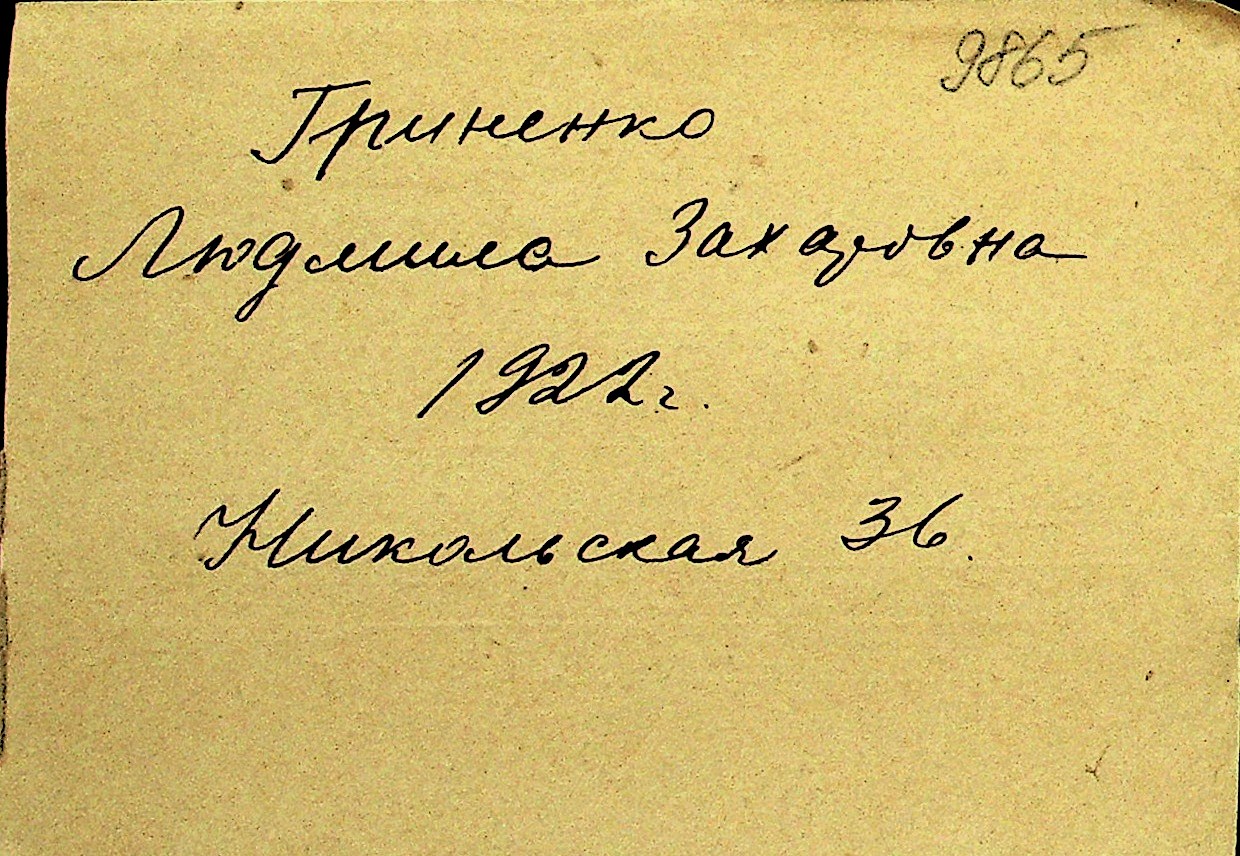 9865
Гриненко
Людмила Захаровна
1922 г.
Никольская 36.